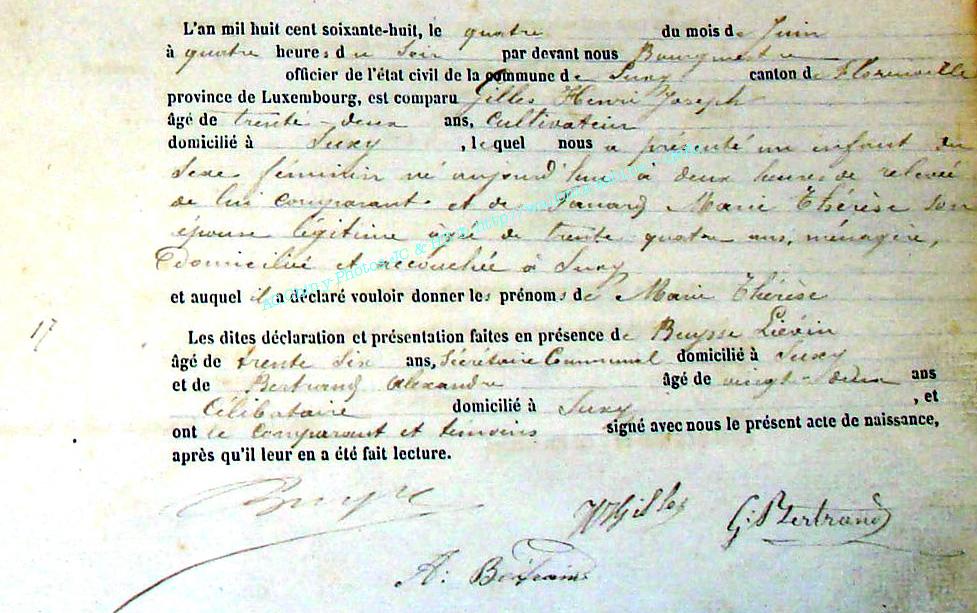 L'an mil huit cent soixante-huit, le quatre du mois de Juin
à quatre heures du Soir par devant nous Bourgmestre
officier de l'état civil de la commune de Suxy canton de Florenville
province de Luxembourg, est comparu Gilles Henri Joseph
âgé de trente-deux ans, Cultivateur
domicilié à Suxy, lequel nous a présenté un enfant du
Sexe féminin né aujourd'hui à deux heures de relevée
de lui Comparant et de Marie Thérèse Son
épouse légitime âgée de trente quatre ans, ménagère,
Domiciliée et accouchée à Suxy
et auquel il a déclaré vouloir donner les prénoms de Marie Thérèse
17
Les dites déclaration et présentation faites en présence de Buysse Liévin
âgé de trente Six ans, Sécrétaire Communal domicilié à Suxy
et de Bertrand Alexandre âgé de vingt-deux ans
Célibataire domicilié à Suxy, et
ont le Comparant et témoins signé avec nous le présent acte de naissance,
après qu'il leur en a été fait lecture.
Buysse HJGilles G. Bertrand
A: Bertrand